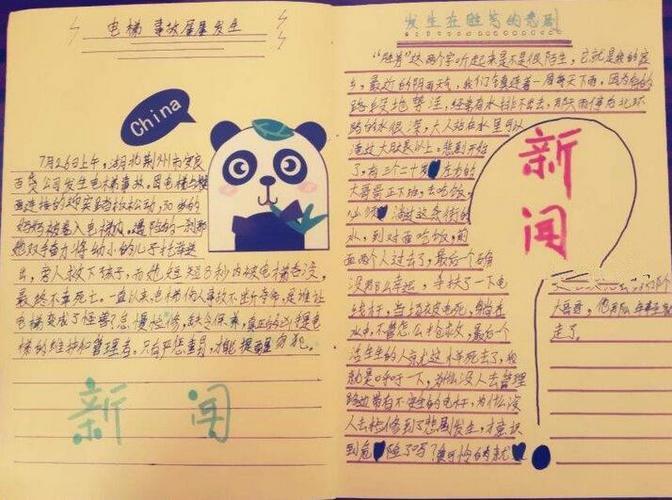 电梯 事故屡屡发生
China
7月26日上午,湖北荆州市安良
百货公司发生电梯事故,因电梯与楼
面连接的踏实踏板松动,30岁的
妈妈被卷入电梯内,遇险的一刹那
她双手奋力将幼小的儿子托举送
出,旁人救下孩子,而她短短8秒内被电梯吞没,
最终不幸死亡。一直以来,电梯伤人事故不断
电梯变成了怪兽?怠慢检修,缺乏保养,真正的凶手是电
梯的维护和管理者。只有严惩重易,才能提醒
新 闻
发生在胜芳的悲剧
“胜芳”这两个字听起来是不是很陌生,它就是我的家
乡,最近的阴雨天气,我们这连着一周每天下雨,因为有的
路段地势洼,经常有水排不出去,那天雨停了北环
路的水很深,大人站在水里可以
淹没大腿以上。悲剧开始
了,有三个二十左右的
大哥哥正下班,去吃饭,
淌过这条街的
水,到对面吃饭,前
面两个人过去了,最后一个
没那么幸运,手扶了一下电
线杆,当场被电死,躺在
水中,不管怎么抢救,最后一个
活生生的人就这样死去了,我
就是哼哼一下,为什么没人去管理
路边带有不安全的电杆,为什么没
人去检修到了悲剧发生,才意识
到危险了吗?
新
闻
大哥哥,
走了。